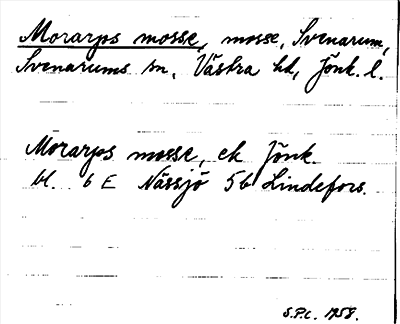 Morarps mosse, mosse, Svenarum,
Svenarums sn, Västra hd, Jönk. l.
Morarps mosse, ek Jönk.
bl. 6 E Nässjö 5b Lindefors.
S.P.C. 1958.